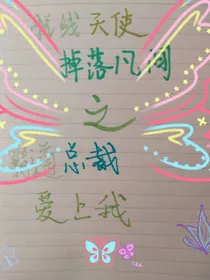 脱线天使
掉落凡间
之
总裁
爱上我